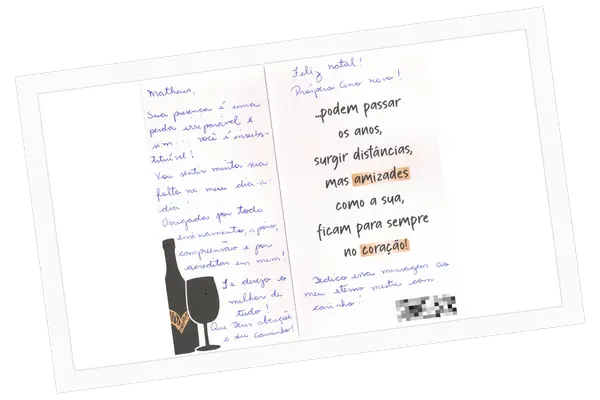 Matheus,
Sua presença é uma
perda irreparável e
sim... você é insubs-
tituível!
Vou sentir muita sua
falta no meu dia-a-
dia!
Obrigada por todo
ensinamento, apoio,
compreensão e por
acreditar em mim!
Te desejo o
melhor de
tudo!
Que Deus abençoe
o seu caminho!
Feliz natal!
Próspero Ano novo!
...podem passar
os anos,
surgir distâncias,
mas amizades
como a sua,
ficam para sempre
no coração!
Dedico essa mensagem ao
meu eterno mestre com
carinho!